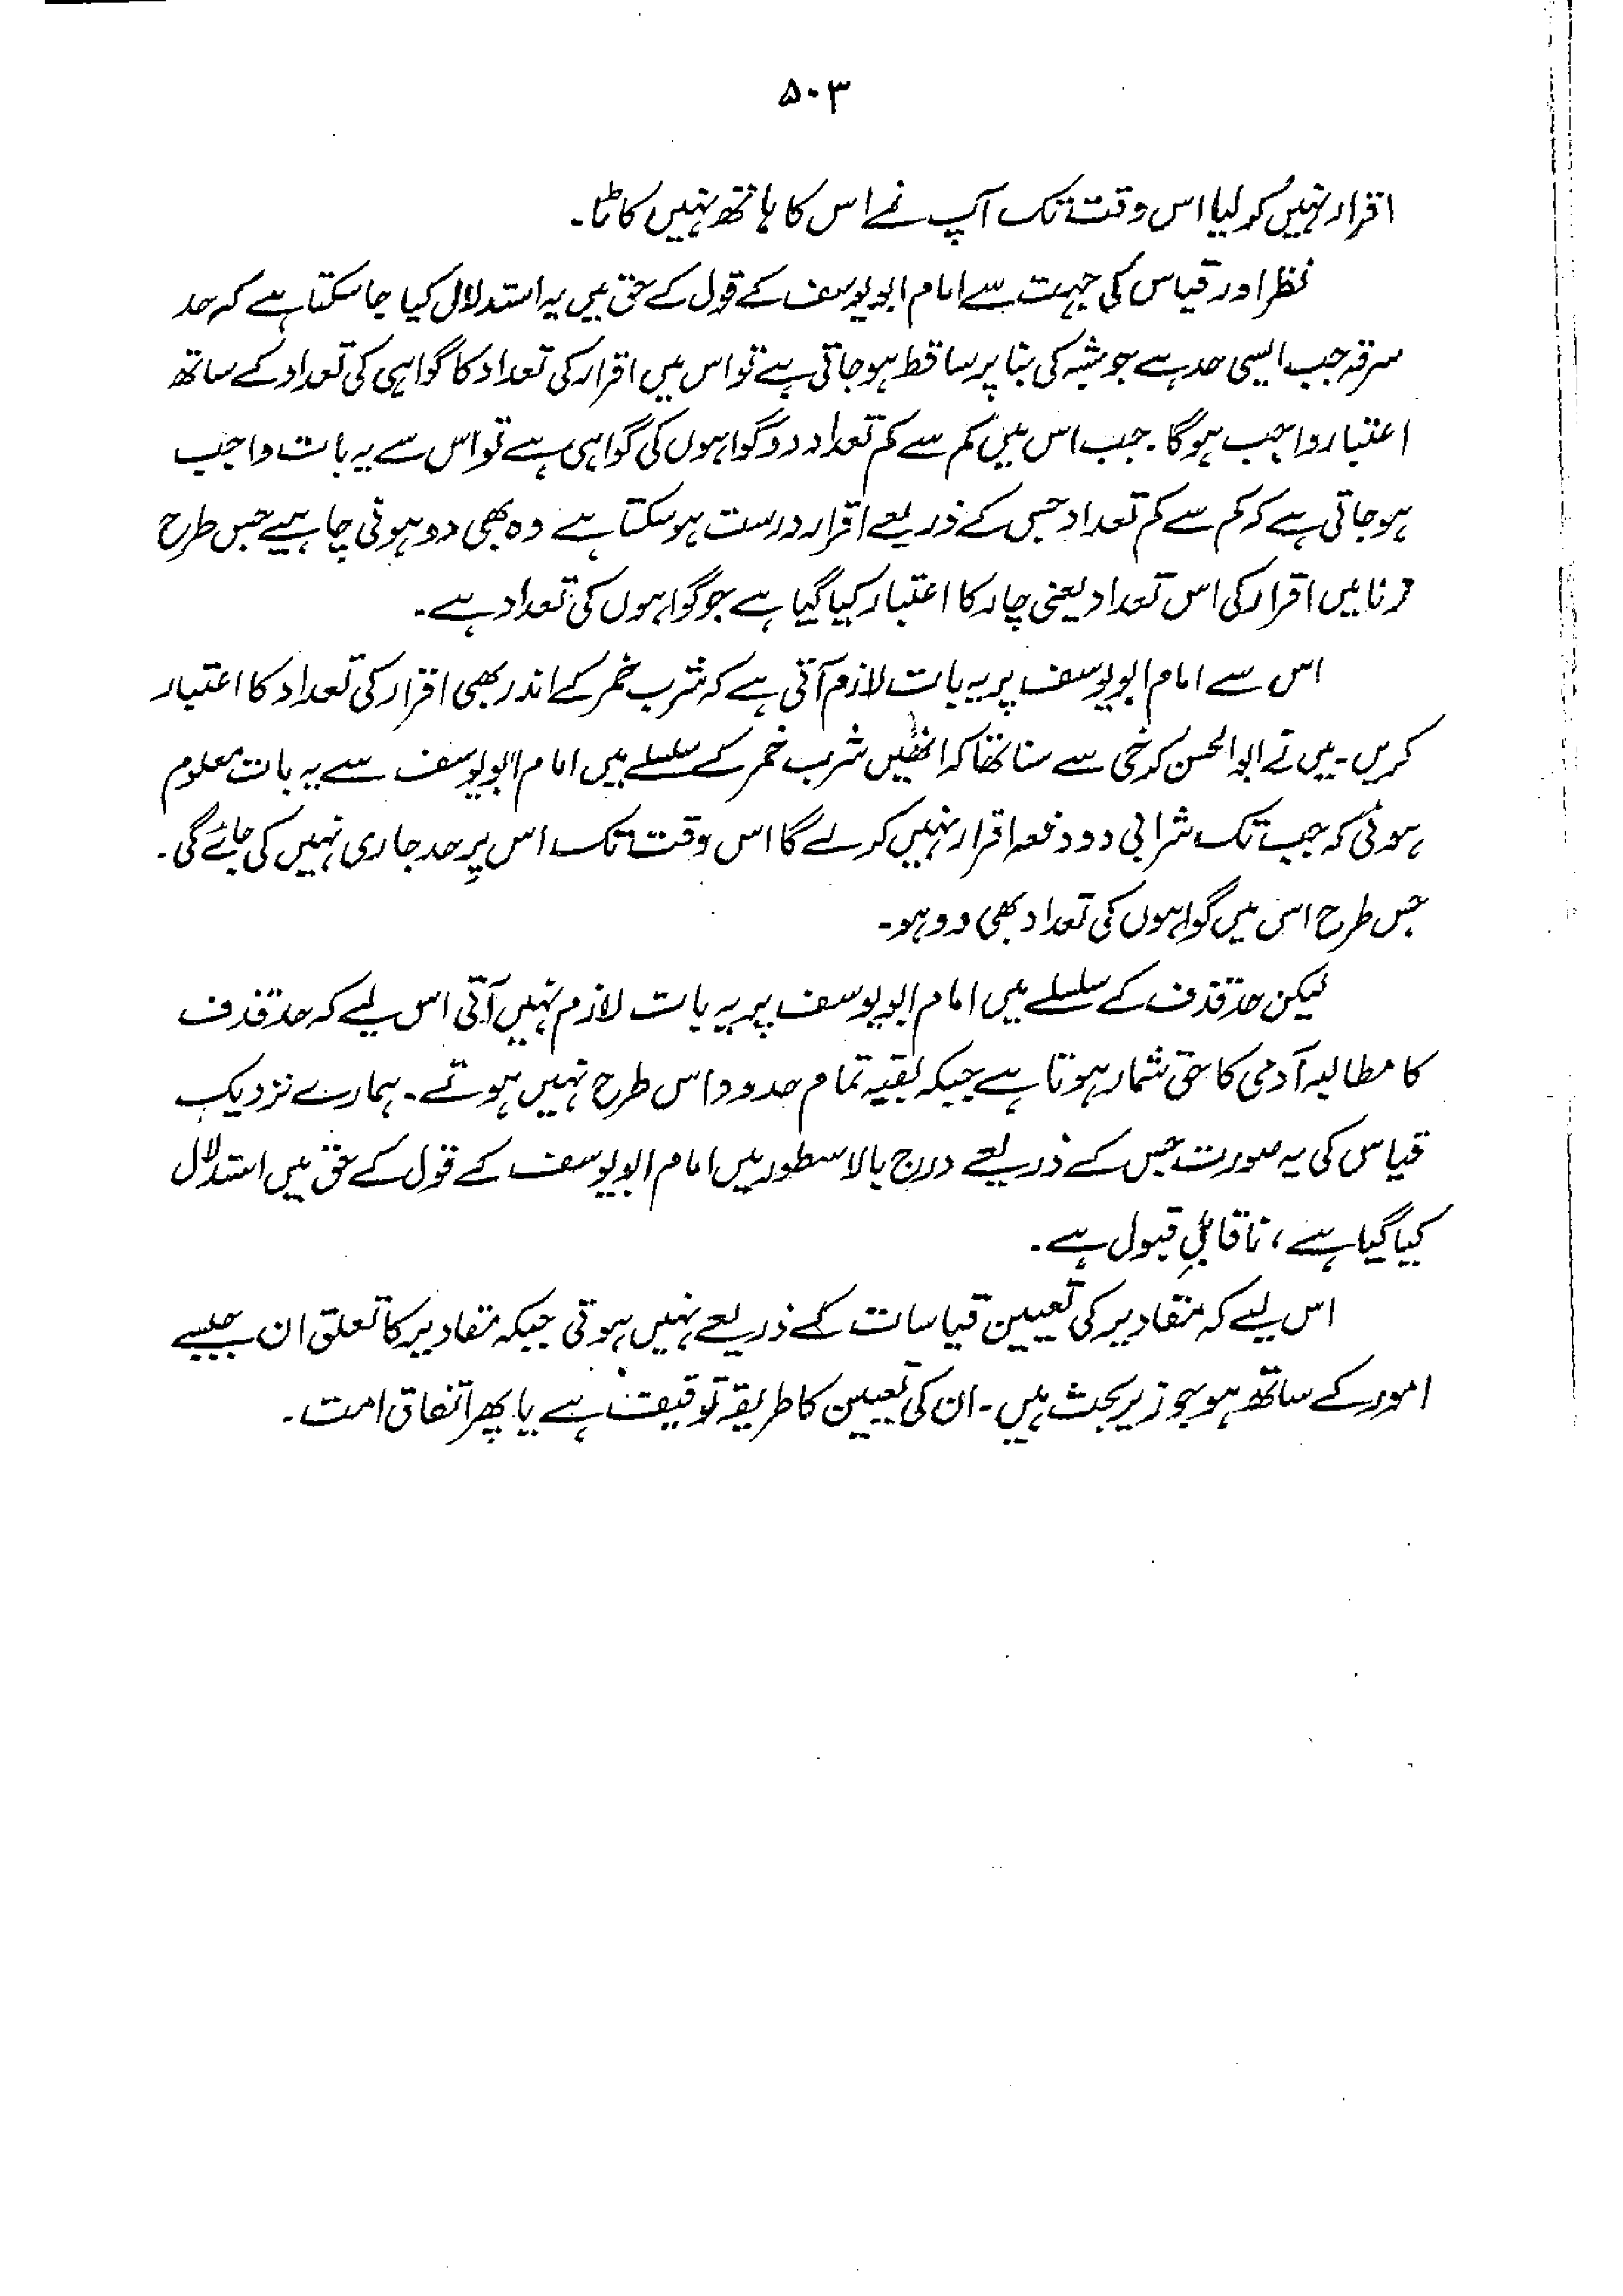 ۵۰۳
اقرار نہیں کر لیا اس وقت تک آپ نے اس کا ہاتھ نہیں کاٹا۔
نظر اور قیاس کی جہت سے امام ابویوسف کے قول کے حق میں یہ استدلال کیا جاسکتا ہے کہ حد
سرقہ جب ایسی حد ہے جو شبہ کی بنا پر ساقط ہو جاتی ہے تو اس میں اقرار کی تعداد کا گواہی کی تعداد کے ساتھ
اعتبار واجب ہوگا۔ جب اس میں کم سے کم تعداد دو گواہوں کی گواہی ہے تو اس سے یہ بات واجب
ہو جاتی ہے کہ کم سے کم تعداد جس کے ذریعے اقرار درست ہوسکتا ہے وہ بھی دو ہونی چاہیے جس طرح
زنا میں اقرار کی اس تعداد یعنی چار کا اعتبار کیا گیا ہے جو گواہوں کی تعداد ہے۔
اس سے امام ابویوسف پر یہ بات لازم آتی ہے کہ شرب خمر کے اندر بھی اقرار کی تعداد کا اعتبار
کریں۔ میں نے ابوالحسن کرخی سے سنا تھا کہ انھیں شرب خمر کے سلسلے میں امام ابویوسف سے یہ بات معلوم
ہوئی کہ جب تک شرابی دو دفعہ اقرار نہیں کرلے گا اس وقت تک اس پر حد جاری نہیں کی جائے گی۔
جس طرح اس میں گواہوں کی تعداد بھی دو ہو۔
لیکن حد قذف کے سلسلے میں امام ابویوسف پر یہ بات لازم نہیں آتی اس لیے کہ حد قذف
کا مطالبہ آدمی کا حق شمار ہوتا ہے جبکہ بقیہ تمام حدود اس طرح نہیں ہوتے۔ ہمارے نزدیک
قیاس کی یہ صورت جس کے ذریعے درج بالا سطور میں امام ابویوسف کے قول کے حق میں استدلال
کیا گیا ہے، ناقابلِ قبول ہے۔
اس لیے کہ مقادیر کی تعیین قیاسات کے ذریعے نہیں ہوتی جبکہ مقادیر کا تعلق ان جیسے
امور کے ساتھ ہو جو زیر بحث ہیں۔ ان کی تعیین کا طریقہ توقیف ہے یا پھر اتفاق امت۔